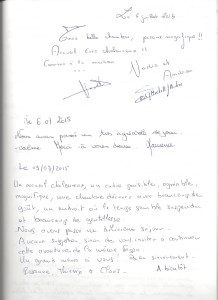 Très belle chambre, piscine magnifique !!
Accueil très chaleureux !!
Comme à la maison
Nadia et
Le 6.07.2015
Nous avons passé un très agréable séjour.
Merci à vous deux.
Le 19/07/2015
Un accueil chaleureux, un cadre paisible, agréable,
magnifique, une chambre décorée avec beaucoup de
goût, un endroit où le temps semble suspendu
et beaucoup de gentillesse.
Nous avons passé un délicieux séjour.
Aucune suggestion sinon de vous inviter à continuer
cette aventure de la même façon.
Un grand merci à vous ! Bien sincèrement.
A bientôt